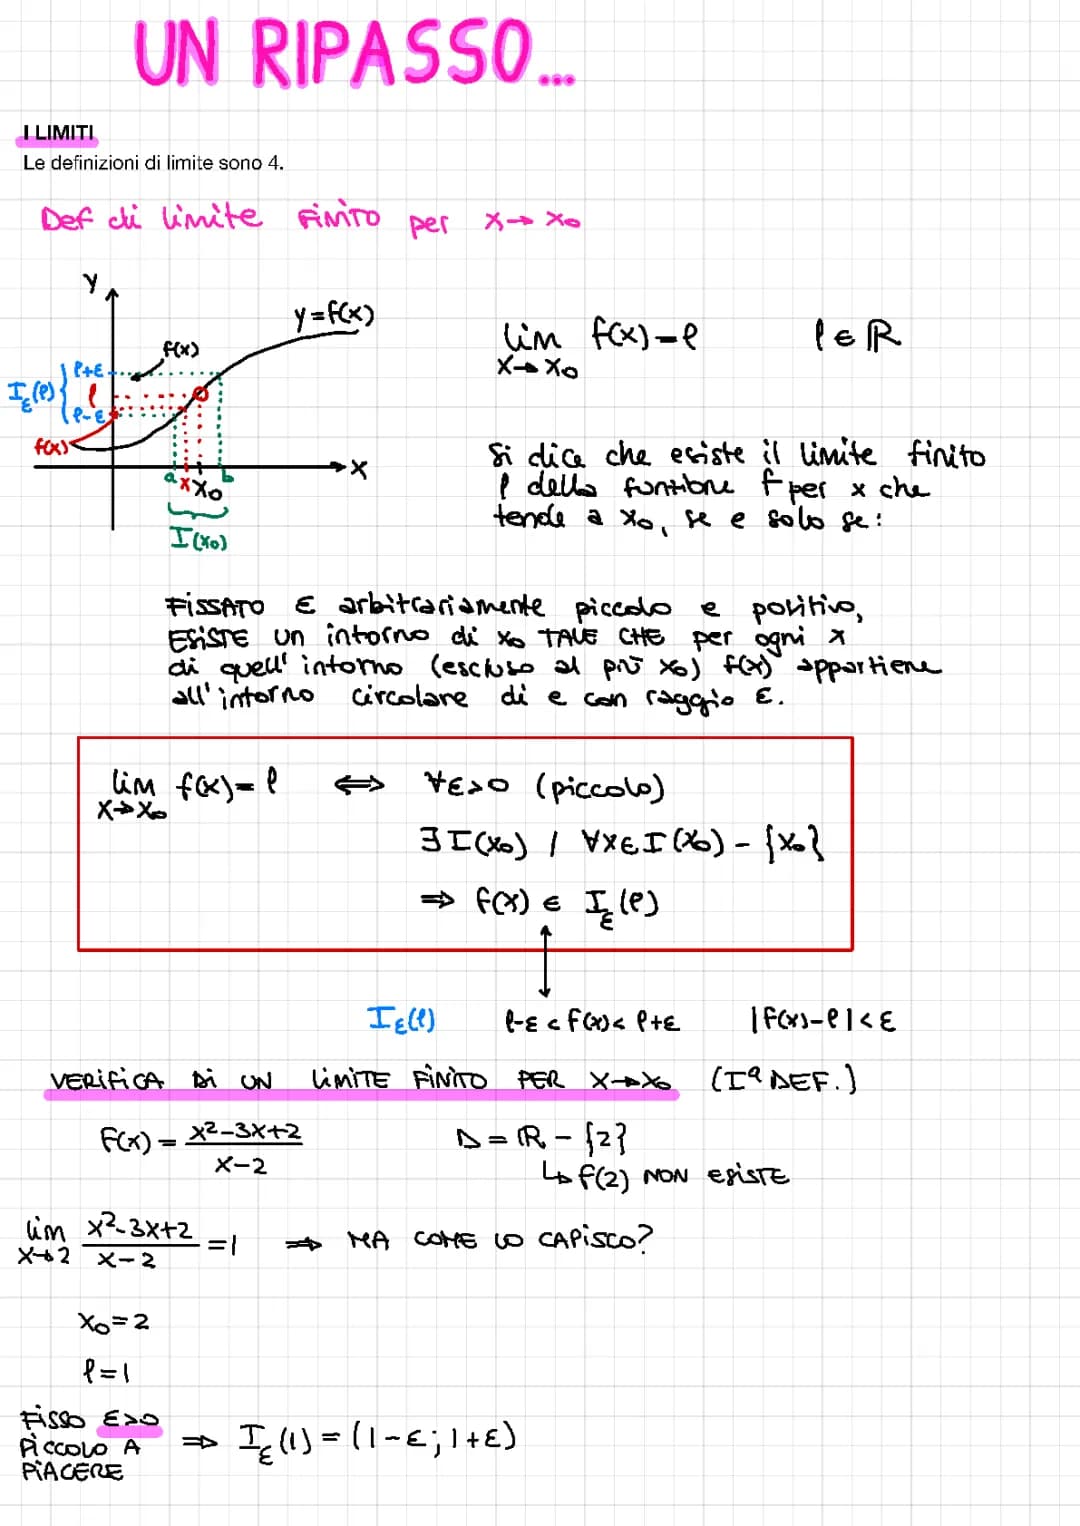 UN RIPASSO...
I LIMITI
Le definizioni di limite sono 4.
Def di limite FINITO per x→x₀
Y
y=f(x)
f(x)
lim f(x)=ℓ ℓ∈ℝ
x→x₀
ℓ+ε
I_ε(ℓ) { ℓ
ℓ-ε
f(x)
x
a x x₀ b
I(x₀)
Si dice che esiste il limite finito
ℓ della funzione f per x che
tende a x₀, se e solo se:
FISSATO ε arbitrariamente piccolo e positivo,
ESISTE un intorno di x₀ TALE CHE per ogni x
di quell'intorno (escluso al più x₀) f(x) appartiene
all'intorno circolare di ℓ con raggio ε.
lim f(x)=ℓ ⟺ ∀ε>0 (piccolo)
x→x₀
∃ I(x₀) / ∀x∈I(x₀) - {x₀}
⇒ f(x) ∈ I_ε(ℓ)
I_ε(ℓ) ℓ-ε < f(x) < ℓ+ε |f(x)-ℓ|<ε
VERIFICA DI UN LIMITE FINITO PER x→x₀ (Iª DEF.)
F(x) = x²-3x+2 D = ℝ - {2}
x-2 ↳ f(2) NON ESISTE
lim x²-3x+2 = 1 ⇒ MA COME LO CAPISCO?
x→2 x-2
x₀=2
ℓ=1
FISSO ε>0
PICCOLO A ⇒ I_ε(1) = (1-ε; 1+ε)
PIACERE